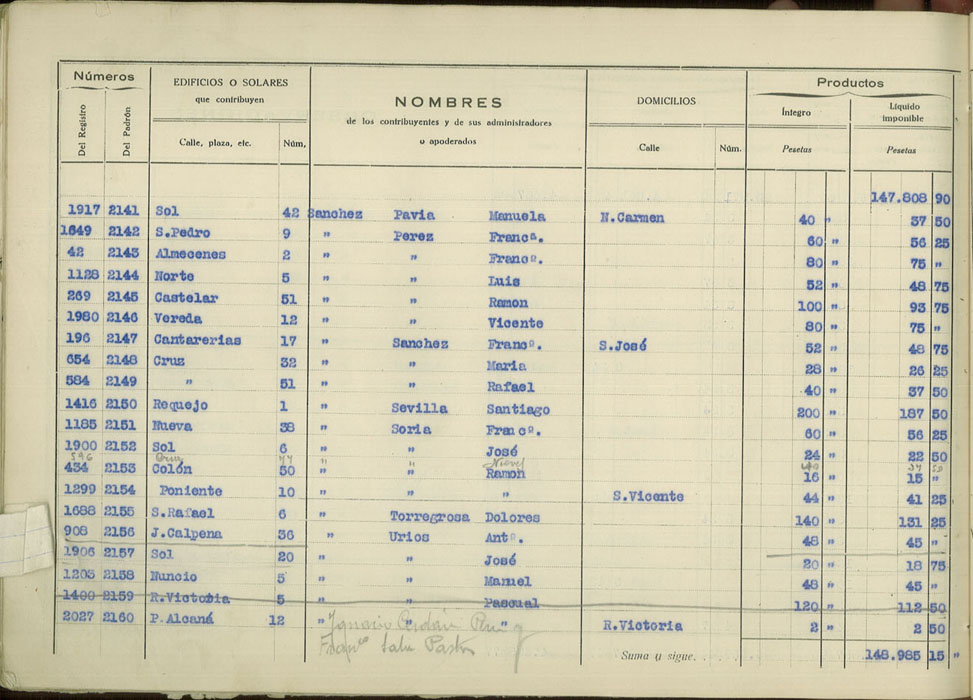 Números
EDIFICIOS O SOLARES
que contribuyen
NOMBRES
de los contribuyentes y de sus administradores
o apoderados
DOMICILIOS
Productos
Del Registro
Del Padrón
Calle, plaza, etc.
Núm.
Calle
Núm.
Íntegro
Pesetas
Líquido imponible
Pesetas
147.808 90
1917 2141 Sol 42 Sanchez Pavia Manuela N.Carmen 40 " 37 50
1649 2142 S.Pedro 9 " Perez Francª. 60 " 56 25
42 2143 Almecenes 2 " " Francº. 80 " 75 "
1128 2144 Norte 5 " " Luis 52 " 48 75
269 2145 Castelar 51 " " Ramon 100 " 93 75
1980 2146 Vereda 12 " " Vicente 80 " 75 "
196 2147 Cantarerias 17 " Sanchez Francº. S.José 52 " 48 75
654 2148 Cruz 32 " " Maria 28 " 26 25
584 2149 " 51 " " Rafael 40 " 37 50
1416 2150 Requejo 1 " Sevilla Santiago 200 " 187 50
1185 2151 Nueva 38 " Soria Francº. 60 " 56 25
1900 2152 Sol 6 " " José 24 " 22 50
596 Cruz 44 " "
434 2153 Colón 50 " " Ramon 16 " 15 "
1299 2154 Poniente 10 " " " S.Vicente 44 " 41 25
1688 2155 S.Rafael 6 " Torregrosa Dolores 140 " 131 25
908 2156 J.Calpena 36 " Urios Antº. 48 " 45 "
1906 2157 Sol 20 " " José 20 " 18 75
1203 2158 Nuncio 5 " " Manuel 48 " 45 "
1400 2159 R.Victoria 5 " " Pascual 120 " 112 50
2027 2160 P.Alcaná 12 " " " R.Victoria 2 " 2 50
Ignacio
Franco
Suma y sigue. 148.985 15 "